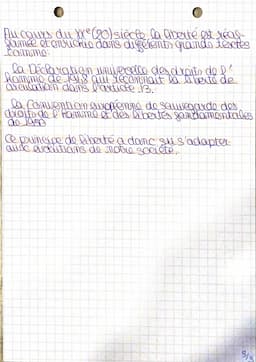 Au cours du XXe (20) siècle la liberté est réaf-
firmée et enrichie dans différents grands textes
comme:
. la Déclaration universelle des droits de l'
homme de 1948 qui reconnait la liberté de
circulation dans l'article 13.
. la Convention européenne de sauvegarde des
droits de l'homme et des libertés fondamentales
de 1950
Ce principe de liberté a donc su s'adapter
aux évolutions de notre société.
5/5